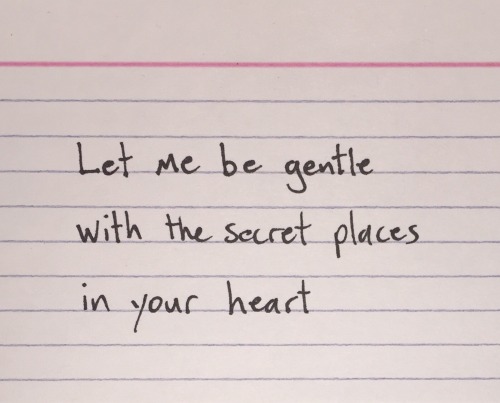 Let me be gentle
with the secret places
in your heart